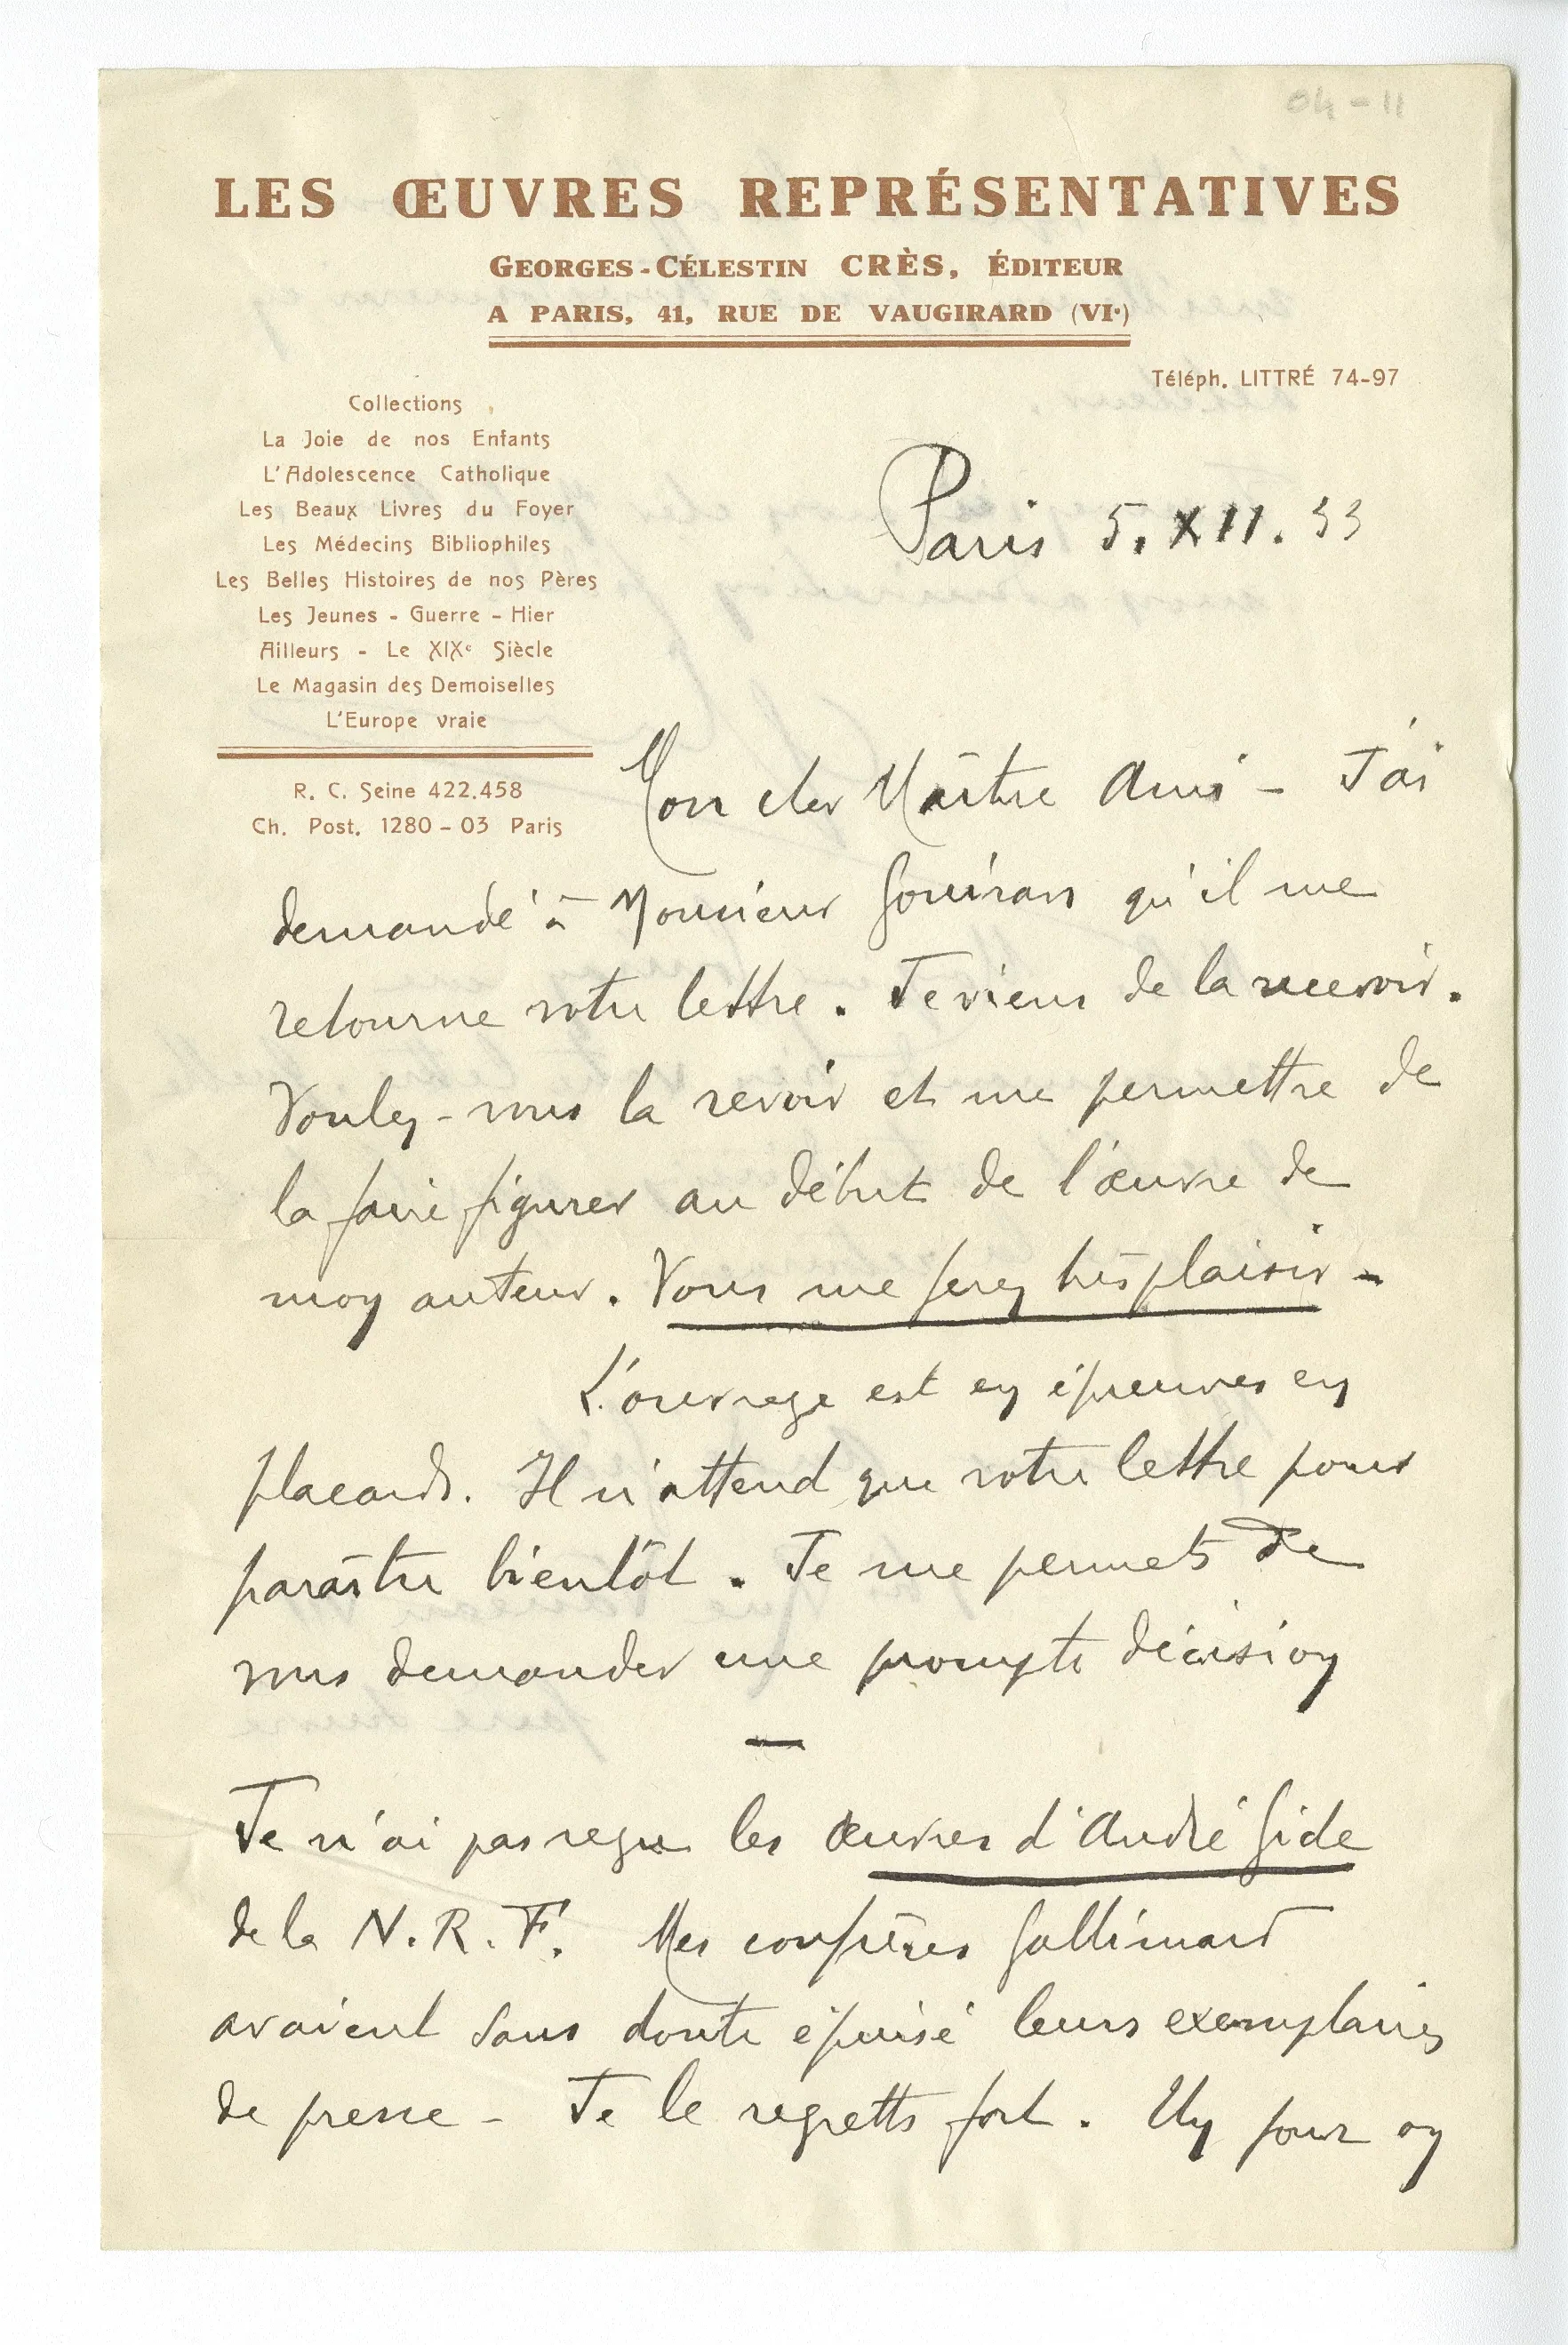 04-11
LES ŒUVRES REPRÉSENTATIVES
GEORGES-CÉLESTIN CRÈS, ÉDITEUR
A PARIS, 41, RUE DE VAUGIRARD (VIe)
Téléph. LITTRÉ 74-97
Collections
La Joie de nos Enfants
L'Adolescence Catholique
Les Beaux Livres du Foyer
Les Médecins Bibliophiles
Les Belles Histoires de nos Pères
Les Jeunes - Guerre - Hier
Ailleurs - Le XIXe Siècle
Le Magasin des Demoiselles
L'Europe vraie
R. C. Seine 422.458
Ch. Post. 1280-03 Paris
Paris 5.XII.33
Mon cher Maître Ami - J'ai
demandé à Monsieur Gouiran qu'il me
retourne votre lettre. Je viens de la recevoir.
Voulez-vous la revoir et me permettre de
la faire figurer au début de l'œuvre de
mon auteur. Vous me ferez très plaisir -
L'ouvrage est en épreuves en
placards. Il n'attend que votre lettre pour
paraître bientôt. Je me permets de
vous demander une prompte décision
—
Je n'ai pas reçu les Œuvres d'André Gide
de la N.R.F. Mes confrères Gallimard
avaient sans doute épuisé leurs exemplaires
de presse - Je le regrette fort. Un jour on